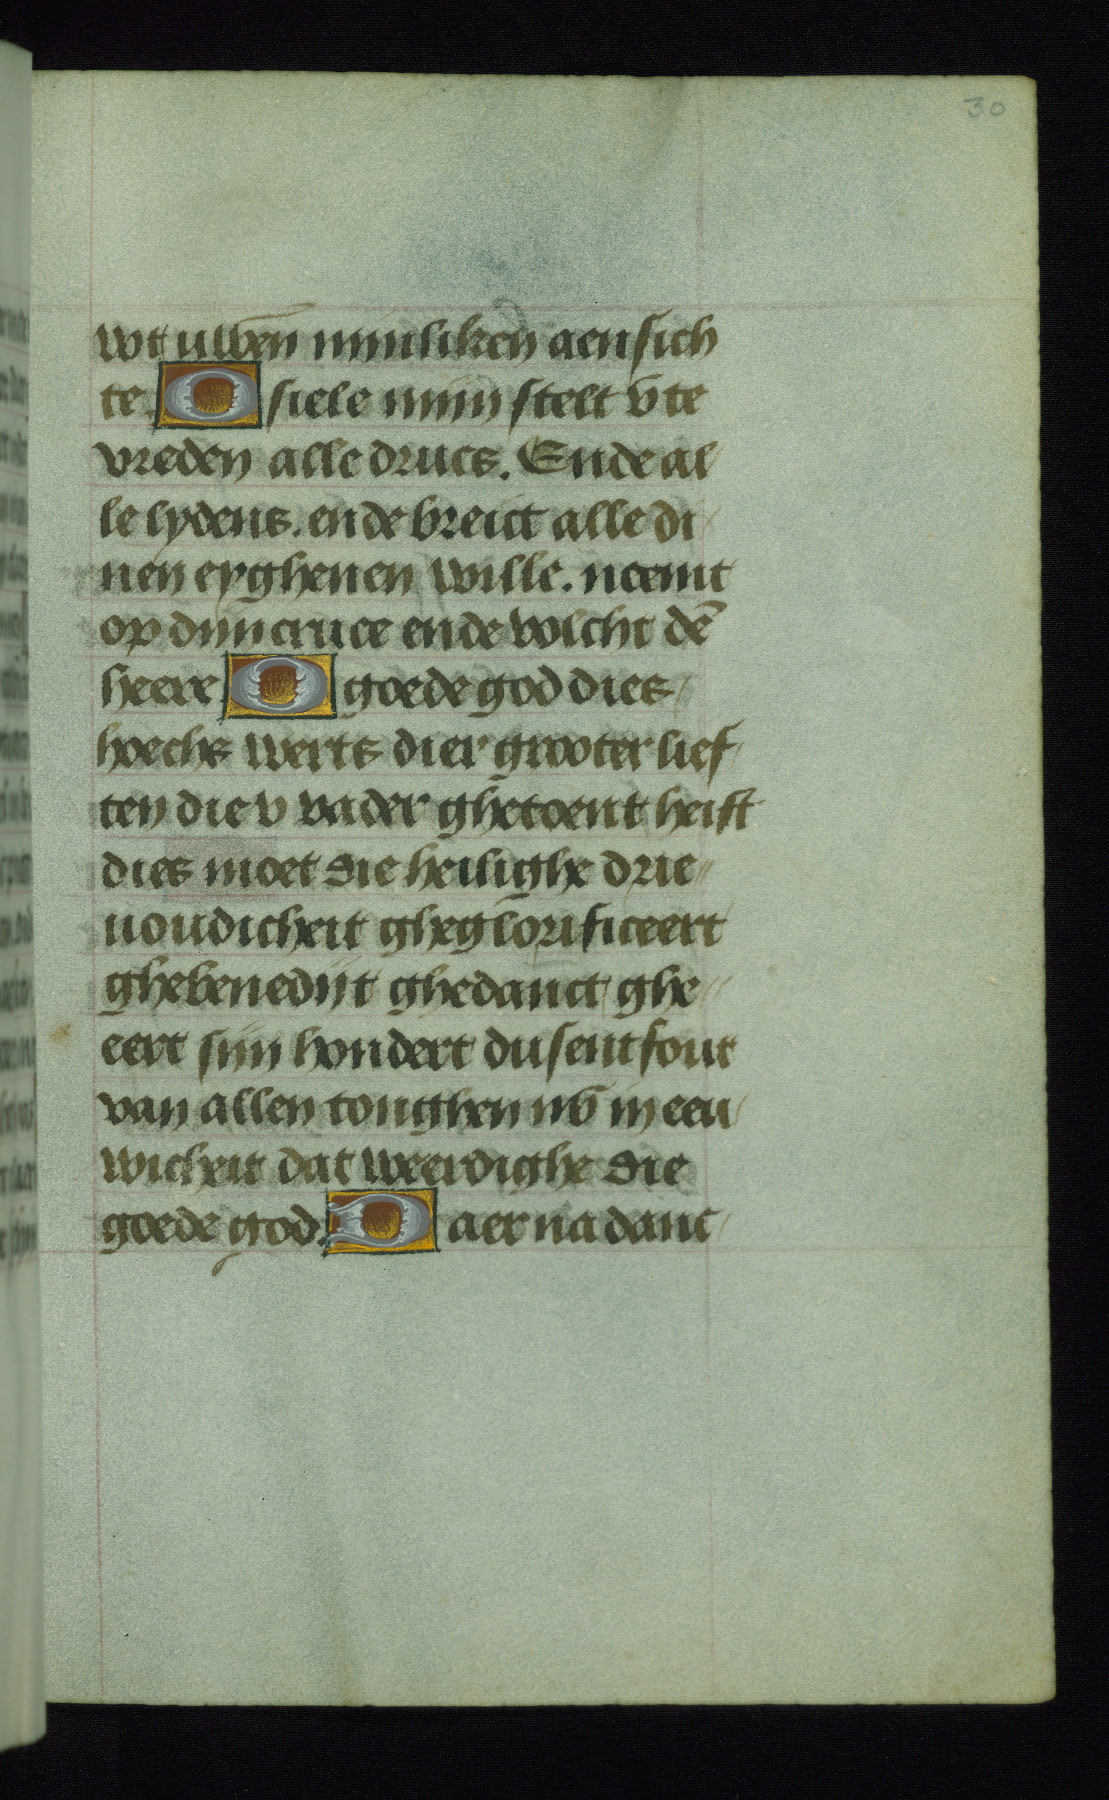 30
wt ulben minliken aensich
te. O siele miin stelt v̄ te
vreden alle drucs. Ende al
le lydens. ende breict alle di
nen eyghenen wille. neemt
op diin cruce ende volcht dē
heere O goede god dies
hoechs werts dier grooter lief
ten die v vader ghetoent heift
dies moet die heilighe drie
uoudicheit gheglorificeert
ghebenedijt ghedanct ghe
eert siin hondert dusentfout
van allen tonghen in eeu
wicheit dat weerdighe die
goede god. D aer na danc